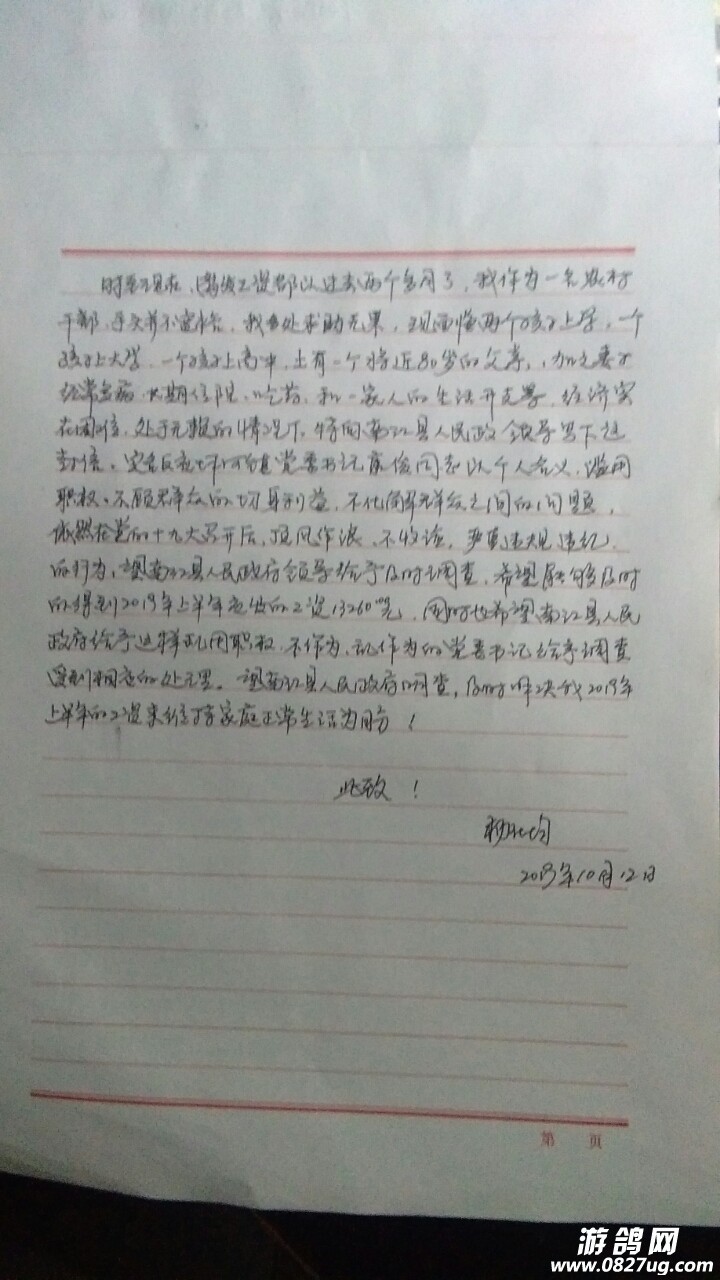 时至现在,离发工资都以过去两个多月了,我作为一名农村
干部,手头并不富裕,我多处求助无果,现面临两个孩子上学,一个
孩子上大学,一个孩子上高中,上有一个将近80岁的父亲,加之妻子
经常生病,长期住院、吃药,和一家人的生活开支等,经济实
在困难,处于无赖的情况下,特向南江县人民政府领导写下这
封信,实名反应 党委书记 同志以个人名义,滥用
职权,不顾群众的切身利益,不化解群众之间的问题,
依然在党的十九大召开后,顶风作浪、不收敛,严重违规违纪
的行为,望南江县人民政府领导给予及时调查,希望能够及时
的得到2019年上半年应发的工资13260元,同时也希望南江县人民
政府给予这样乱用职权、不作为、乱作为的党委书记给予调查
受到相应的处理。望南江县人民政府调查,及时解决我2019年
上半年的工资来维持家庭正常生活为盼!
此致!
2019年10月12日
第 页
游鸽网
www.0827ug.com